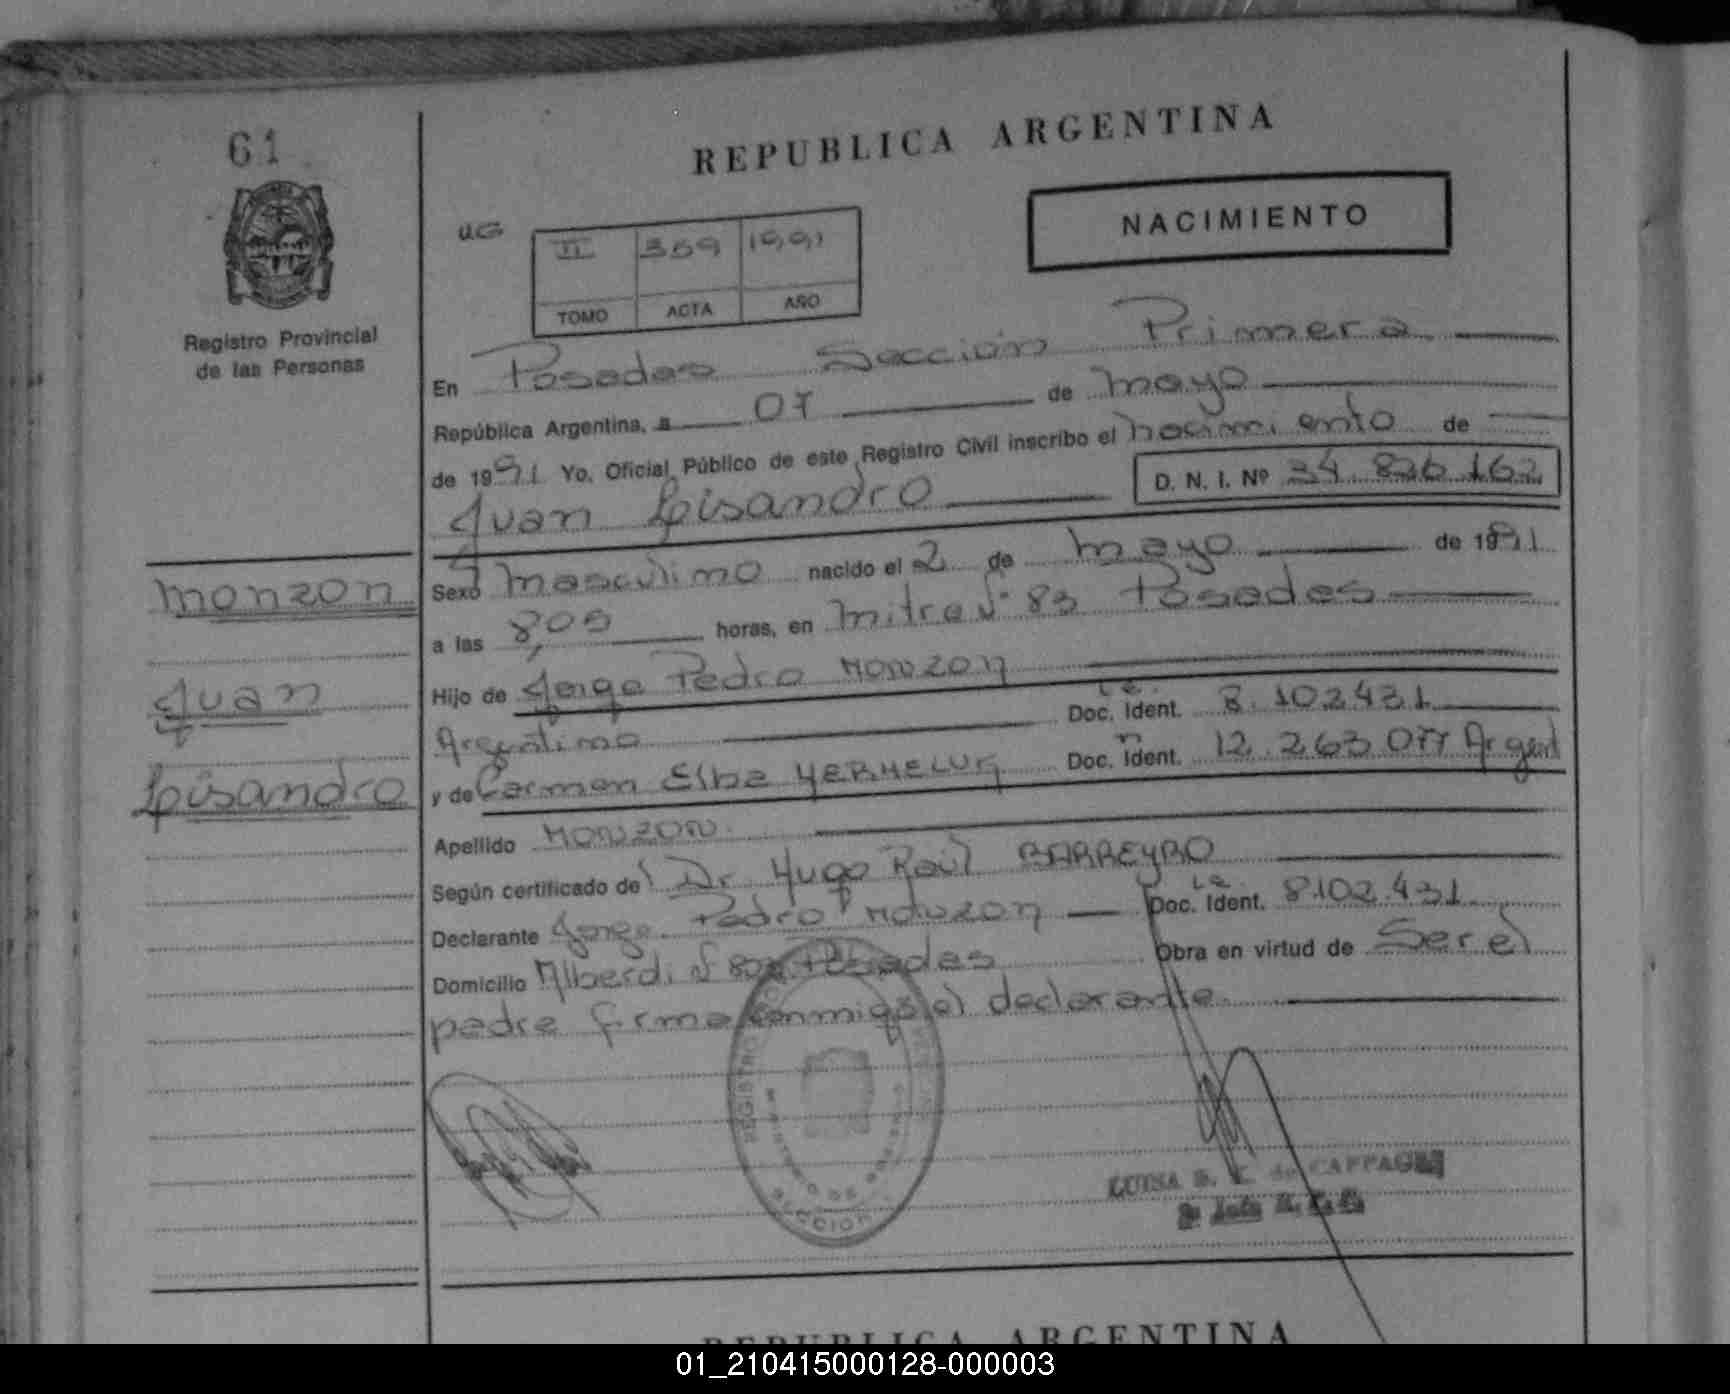 61
REPUBLICA ARGENTINA
Registro Provincial
de las Personas
UG
II 359 1991
TOMO ACTA AÑO
NACIMIENTO
En Posadas Sección Primera
República Argentina, a 07 de mayo
de 1991 Yo, Oficial Público de este Registro Civil inscribo el nacimiento de
Juan Lisandro D. N. I. Nº 34.826.162
monzon
Juan
Lisandro
Sexo masculino nacido el 2 de mayo de 1991
a las 8,05 horas, en mitre Nº 83 Posadas
Hijo de Jorge Pedro MONZON
Argentino Doc. Ident. L.E. 8.102431
y de Carmen Elba Doc. Ident. 12.263.077 Argent
Apellido MONZON
Según certificado del Dr Hugo Raúl BARREYRO
Declarante Jorge Pedro MONZON Doc. Ident. LE 8.102.431
Domicilio Alberdi Posadas Obra en virtud de Ser el
padre firma conmigo el declarante
REGISTRO
MINISTERIO DE GOBIERNO
SECCION
LUISA
REPUBLICA ARGENTINA
01_210415000128-000003